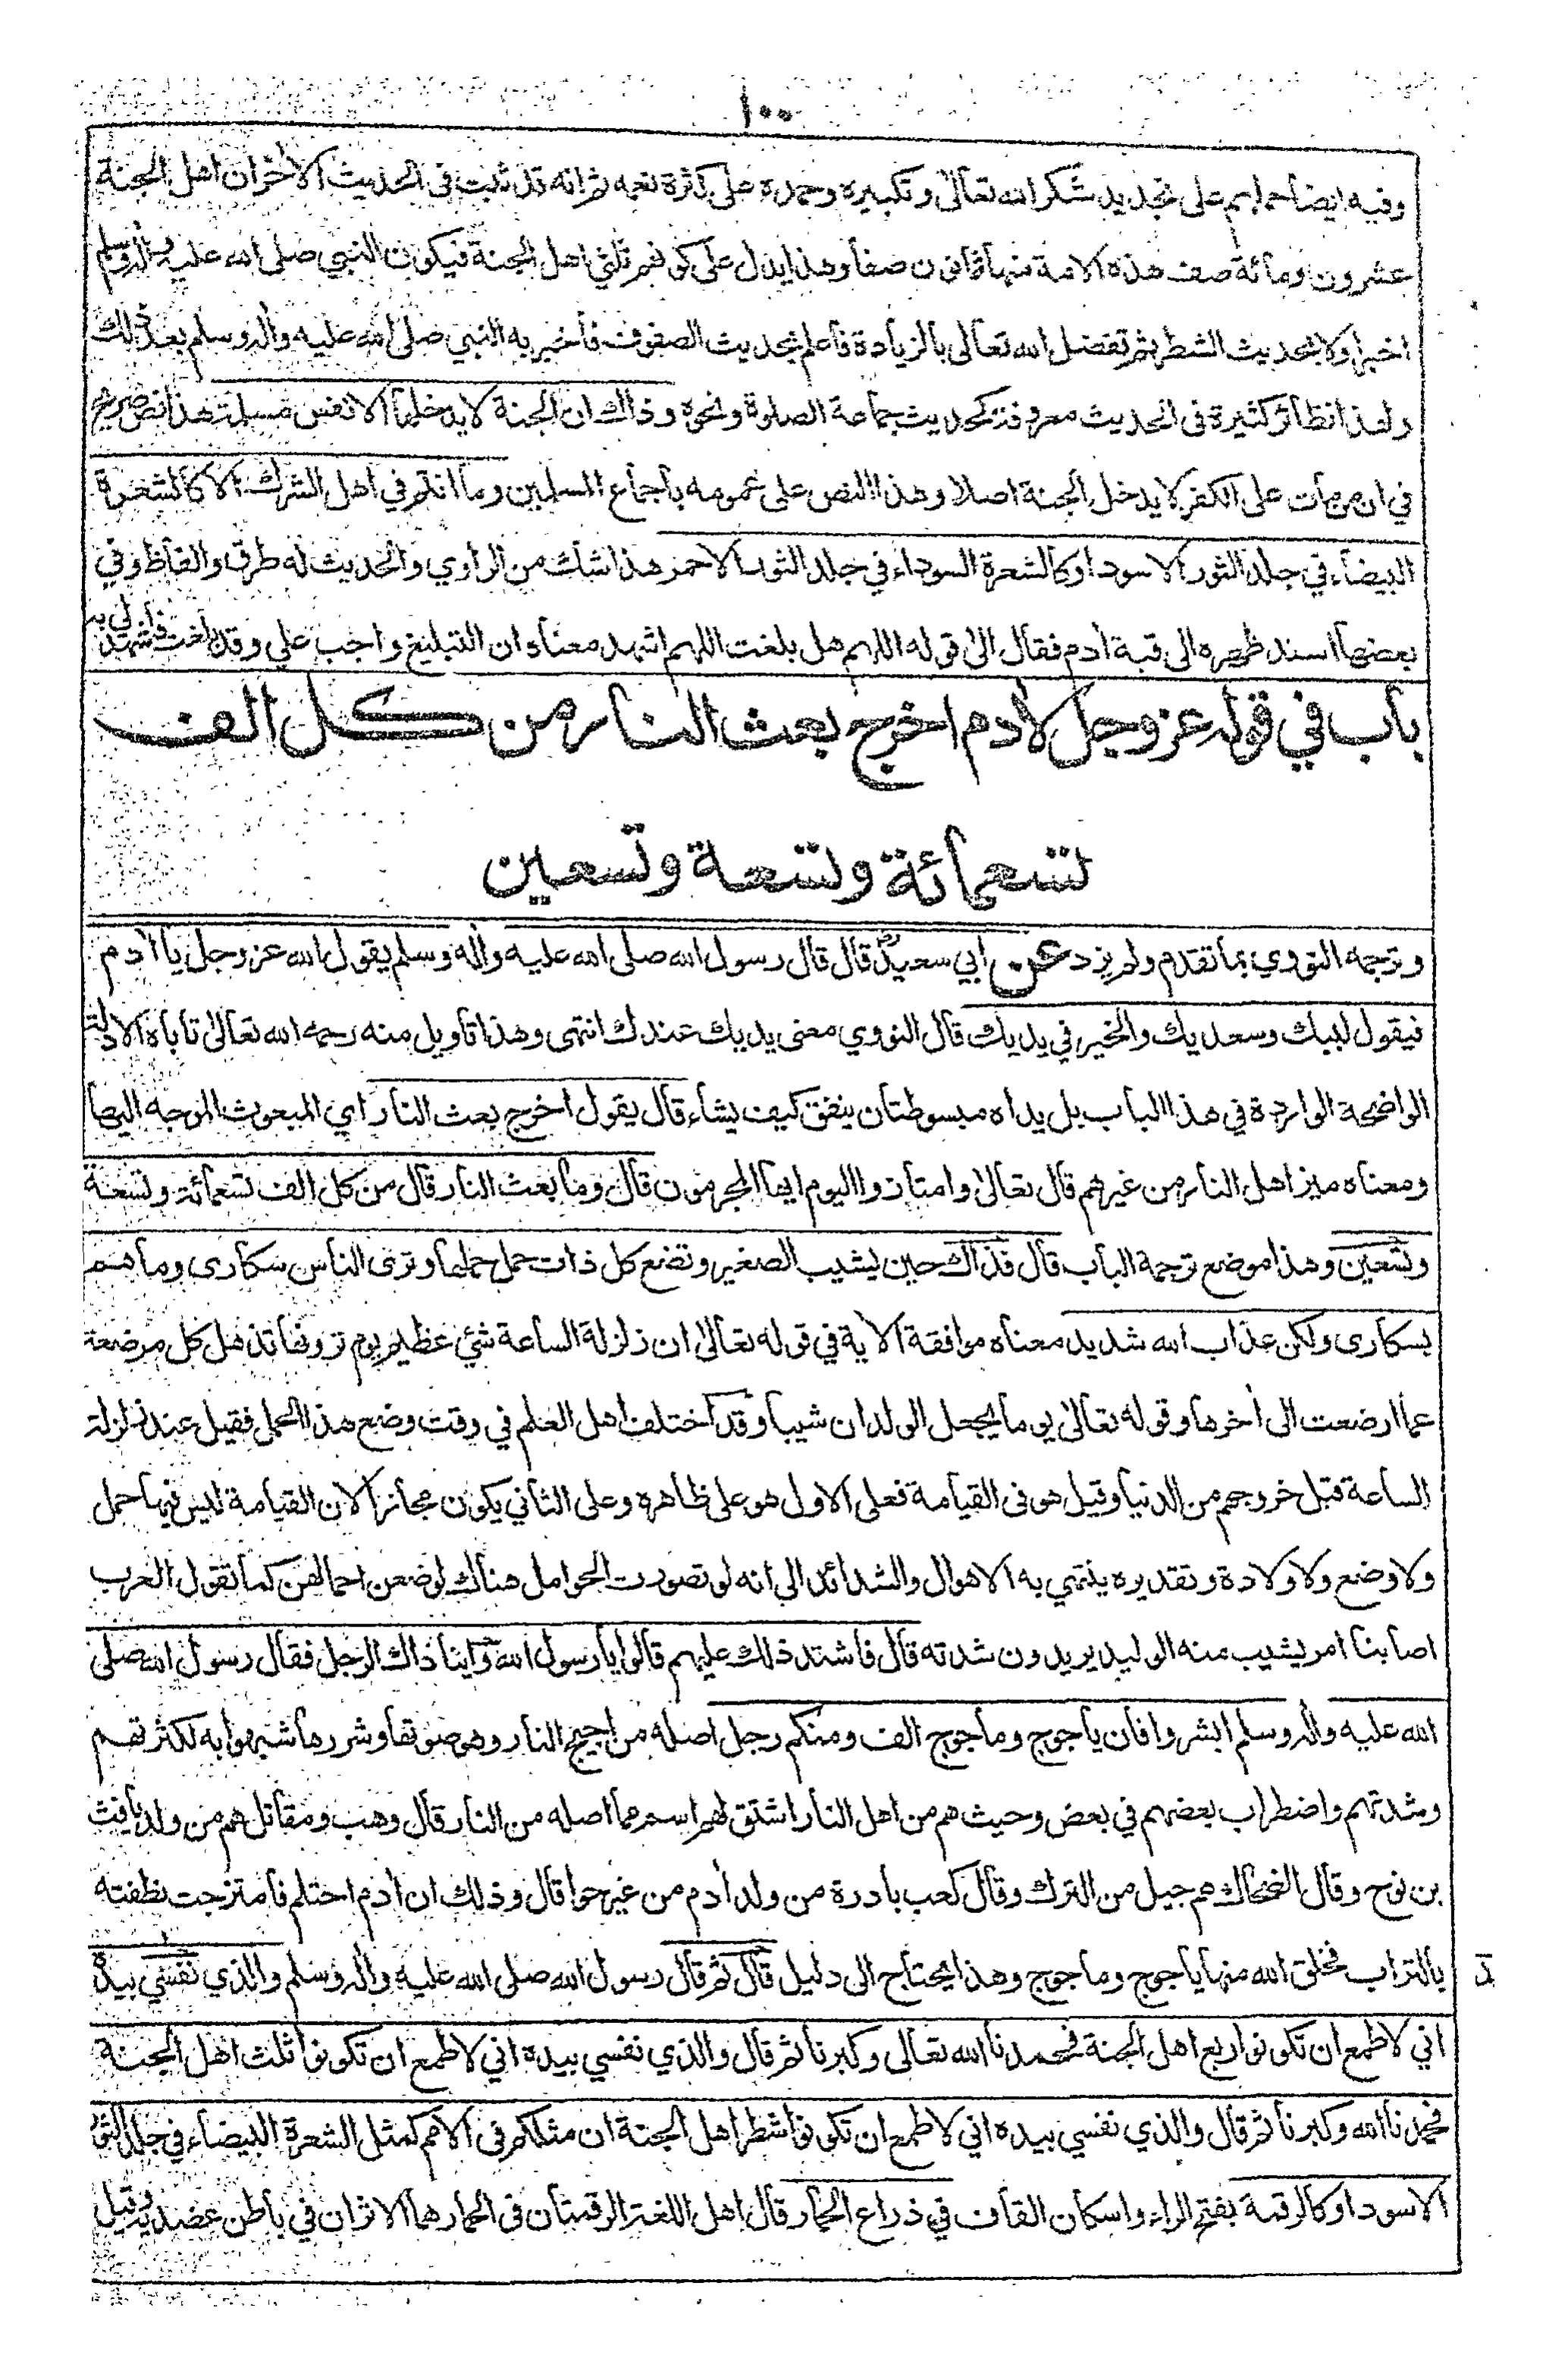 ١٠٠
وفيه ايضا حملهم على تجديد شكر الله تعالى وتكبيره وحمده على كثرة نعمه ثم انه قد ثبت فى الحديث الآخر ان اهل الجنة
عشرون ومائة صف هذه الامة منها ثمانون صفا وهذا يدل على كونهم ثلثي اهل الجنة فيكون النبي صلى الله عليه وآله وسلم
اخبر اولا بحديث الشطر ثم تفضل الله تعالى بالزيادة فأعلم بحديث الصفوف فأخبر به النبي صلى الله عليه وآله وسلم بعد ذلك
ولهذا نظائر كثيرة فى الحديث معروفة كحديث جماعة الصلوة ونحوه وذاك ان الجنة لا يدخلها الا نفس مسلمة هذا نص صريح
في ان من مات على الكفر لا يدخل الجنة اصلا وهذا النص على عمومه بأجماع المسلمين وما انتم في اهل الشرك الا كالشعرة
البيضاء في جلد الثور الاسود او كالشعرة السوداء في جلد الثور الاحمر هذا شك من الراوي والحديث له طرق والفاظ وفي
بعضها اسند ظهره الى قبة أدم فقال الى قوله اللهم هل بلغت اللهم اشهد معناه ان التبليغ واجب علي وقد بلغت فاشهد لي به
بأب في قوله عز وجل لأدم اخرج بعث النار من كل الف
تسعمائة وتسعة وتسعين
وترجمه النووي بما تقدم ولم يزد عن ابي سعيد قال قال رسول الله صلى الله عليه وأله وسلم يقول الله عز وجل يا أدم
فيقول لبيك وسعديك والخير في يديك قال النووي معنى يديك عندك انتهى وهذا تأويل منه رحمه الله تعالى تأباه الادلة
الواضحة الواردة في هذا الباب بل يداه مبسوطتان ينفق كيف يشاء قال يقول اخرج بعث النار اي المبعوث الموجه اليها
ومعناه ميز اهل النار من غيرهم قال تعالى وامتازوا اليوم ايها المجرمون قال وما بعث النار قال من كل الف تسعمائة وتسعة
وتسعين وهذا موضع ترجمة الباب قال فذاك حين يشيب الصغير وتضع كل ذات حمل حملها وترى الناس سكارى وما هم
بسكارى ولكن عذاب الله شديد معناه موافقة الآية في قوله تعالى ان زلزلة الساعة شئ عظيم يوم ترونها تذهل كل مرضعة
عما ارضعت الى أخرها وقوله تعالى يوما يجعل الولدان شيبا وقد اختلف اهل العلم في وقت وضع هذا الحمل فقيل عند زلزلة
الساعة قبل خروجهم من الدنيا وقيل هو فى القيامة فعلى الاول هو على ظاهره وعلى الثاني يكون مجازا لان القيامة ليس فيها حمل
ولا وضع ولا ولادة وتقديره ينتهي به الاهوال والشدائد الى انه لو تصورت الحوامل هناك لوضعن احمالهن كما تقول العرب
اصابنا امر يشيب منه الوليد يريدون شدته قال فاشتد ذلك عليهم قالوا يا رسول الله واينا ذاك الرجل فقال رسول الله صلى
الله عليه وآله وسلم ابشروا فان ياجوج وماجوج الف ومنكم رجل اصله من اجيج النار وهو صوتها وشررها شبهوا به لكثرتهم
وشدتهم واضطراب بعضهم في بعض وحيث هم من اهل النار اشتق لهم اسم مما اصله من النار قال وهب ومقاتل هم من ولد يافث
بن نوح وقال الضحاك هم جيل من الترك وقال كعب بادرة من ولد أدم من غير حوا قال وذلك ان أدم احتلم فامتزجت نطفته
بالتراب فخلق الله منها ياجوج وماجوج وهذا يحتاج الى دليل قال ثم قال رسول الله صلى الله عليه وآله وسلم والذي نفسي بيده
اني لاطمع ان تكونوا ربع اهل الجنة فحمدنا الله تعالى وكبرنا ثم قال والذي نفسي بيده اني لاطمع ان تكونوا ثلث اهل الجنة
فحمدنا الله وكبرنا ثم قال والذي نفسي بيده اني لاطمع ان تكونوا شطر اهل الجنة ان مثلكم فى الامم كمثل الشعرة البيضاء في جلد الثور
الاسود او كالرقمة بفتح الراء واسكان القاف في ذراع الحمار قال اهل اللغة الرقمتان فى الحمار هما الاثران في باطن عضديه وقيل